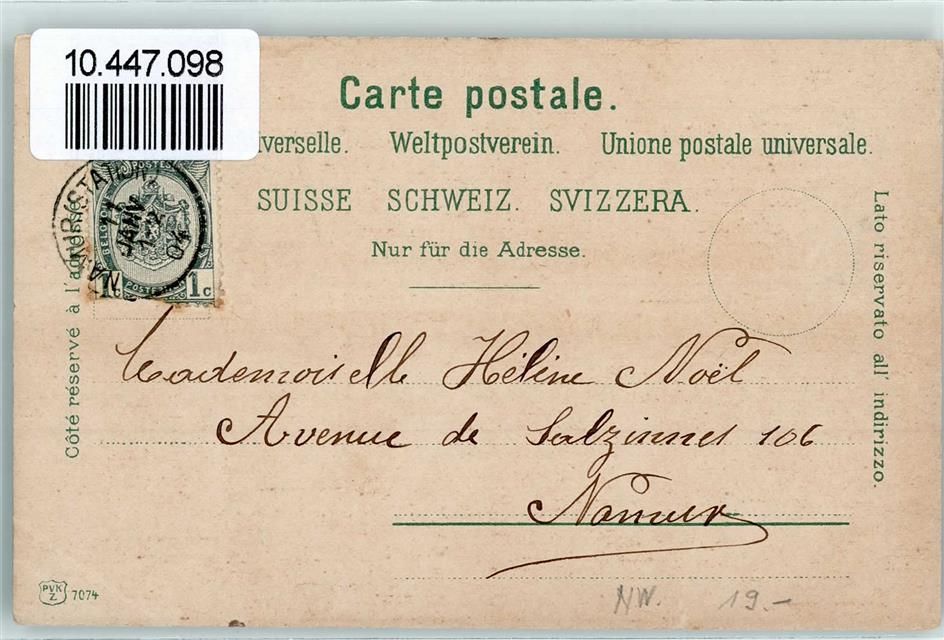 10.447.098
Carte postale.
iverselle. Weltpostverein. Unione postale universale.
SUISSE SCHWEIZ. SVIZZERA.
Nur für die Adresse.
Côté réservé à l'adresse
Lato riservato all' indirizzo.
NAMUR (STATION)
11
JANV
1-2
04
POSTES
BELGIQUE
1c 1c
POSTERIJEN
Mademoiselle Hélène Noël
Avenue de Salzinnes 106
Namur
PVK
Z
7074
NW. 19.-